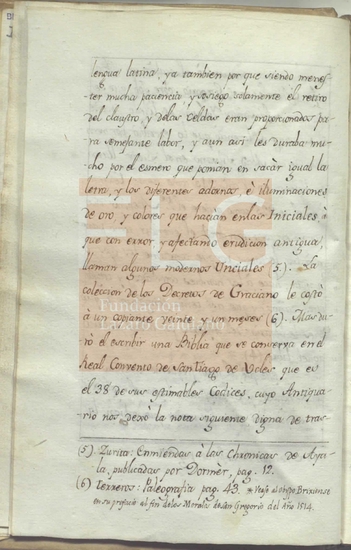 lengua latina, ya tambien por que siendo menes-
ter mucha paciencia, y sosiego, solamente el retiro
del claustro, y delas Celdas eran proporcionados pa-
ra semejante labor, y aun asi les duraba mu-
cho por el esmero que ponian en sacàr igual la
letra, y los diferentes adornos, è iluminaciones
de oro, y colores que hacian enlas Iniciales, à
que con error y afectando erudicion antigua,
llaman algunos modernos Unciales (5). La
coleccion de los Decretos de Graciano le costò
à un copiante veinte y un meses (6). Mas du-
rò el escribir una Biblia que se conserva en el
Real Convento de Santiago de Ucles que es
el 38 de sus estimables Codices, cuyo Antigua-
rio nos dexò la nota siguiente digna de tras-
(5) Zurita: Enmiendas à las Chronicas de Aya-
la, publicadas por Dormèr, pag. 12.
(6) Terreros: Paleografia pag. 43. * Vease al obispo Brixiense
en su prefacio al fin delos Morales de San Gregorio del Año 1514.
FLG
Fundación
Lázaro Galdiano